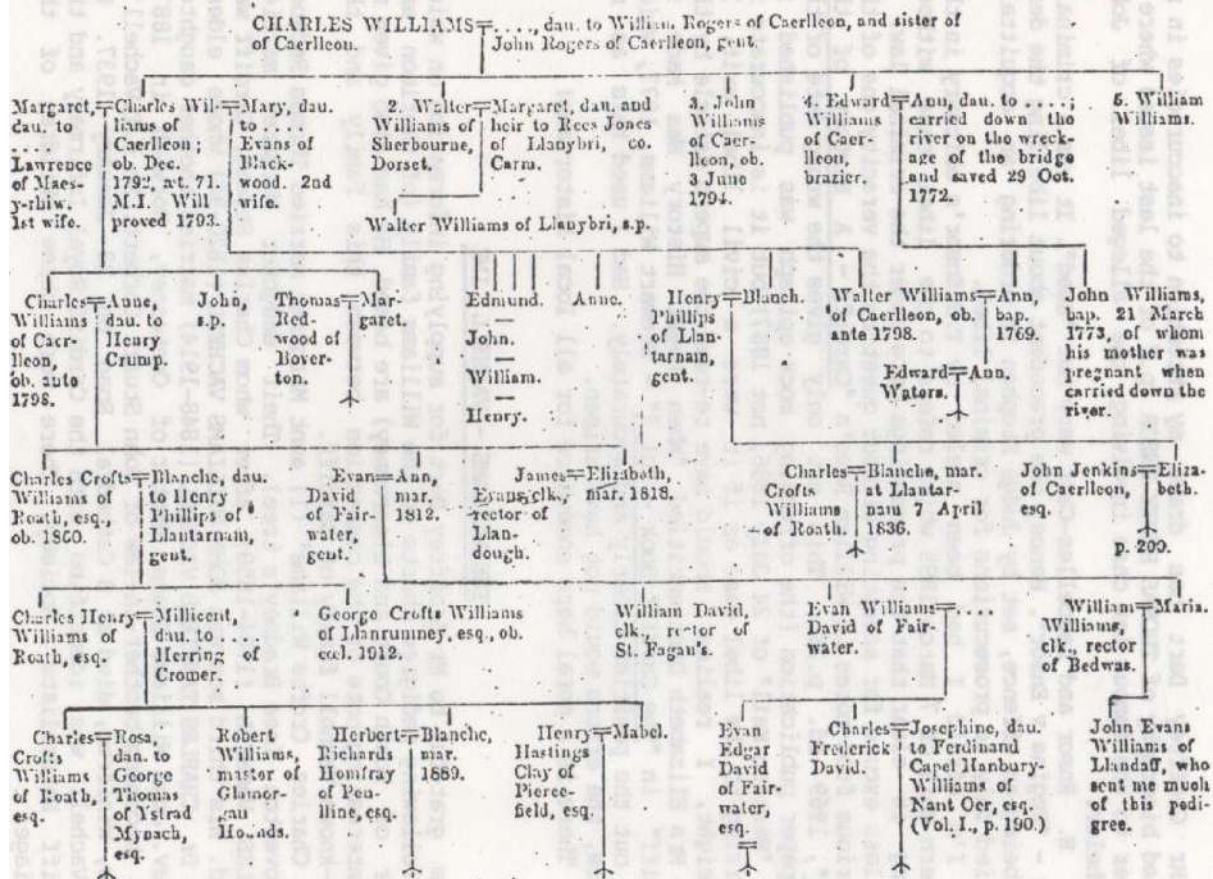 CHARLES WILLIAMS=...., dau. to William Rogers of Caerlleon, and sister of
of Caerlleon.
John Rogers of Caerlleon, gent.
Margaret,
dau. to
....
Lawrence
of Maes-
y-rhiw.
1st wife.
Charles Wil-
liams of
Caerlleon;
ob. Dec.
1792, æt. 71.
M.I. Will
proved 1793.
Mary, dau.
to ....
Evans of
Black-
wood. 2nd
wife.
2. Walter
Williams of
Sherbourne,
Dorset.
Margaret, dau. and
heir to Rees Jones
of Llanybri, co.
Carm.
3. John
Williams
of Caer-
lleon, ob.
3 June
1794.
4. Edward
Williams
of Caer-
lleon,
brazier.
Ann, dau. to ....;
carried down the
river on the wreck-
age of the bridge
and saved 29 Oct.
1772.
5. William
Williams.
Walter Williams of Llanybri, s.p.
Charles
Williams
of Caer-
lleon,
ob. ante
1798.
Anne,
dau. to
Henry
Crump.
John,
s.p.
Thomas
Red-
wood of
Bover-
ton.
Mar-
garet.
Edmund.
—
John.
—
William.
—
Henry.
Anne.
Henry
Phillips
of Llan-
tarnain,
gent.
Blanch.
Walter Williams
of Caerlleon, ob.
ante 1798.
Ann,
bap.
1769.
Edward=Ann.
Waters.
John Williams,
bap. 21 March
1773, of whom
his mother was
pregnant when
carried down the
river.
Charles Crofts
Williams of
Roath, esq.,
ob. 1860.
Blanche, dau.
to Henry
Phillips of
Llantarnam,
gent.
Evan
David
of Fair-
water,
gent.
Ann,
mar.
1812.
James
Evans, clk.,
rector of
Llan-
dough.
Elizabeth,
mar. 1818.
Charles
Crofts
Williams
of Roath.
Blanche, mar.
at Llantar-
nam 7 April
1836.
John Jenkins
of Caerlleon,
esq.
Eliza-
beth.
p. 200.
Charles Henry
Williams of
Roath, esq.
Millicent,
dau. to ....
Herring of
Cromer.
George Crofts Williams
of Llanrumney, esq., ob.
cœl. 1912.
William David,
clk., rector of
St. Fagan's.
Evan Williams=....
David of Fair-
water.
William
Williams,
clk., rector
of Bedwas.
Maria.
Charles
Crofts
Williams
of Roath,
esq.
Rosa,
dau. to
George
Thomas
of Ystrad
Mynach,
esq.
Robert
Williams,
master of
Glamor-
gan
Hounds.
Herbert
Richards
Homfray
of Pen-
lline, esq.
Blanche,
mar.
1889.
Henry
Hastings
Clay of
Pierce-
field, esq.
Mabel.
Evan
Edgar
David
of Fair-
water,
esq.
Charles
Frederick
David.
Josephine, dau.
to Ferdinand
Capel Hanbury-
Williams of
Nant Oer, esq.
(Vol. I., p. 190.)
John Evans
Williams of
Llandaff, who
sent me much
of this pedi-
gree.